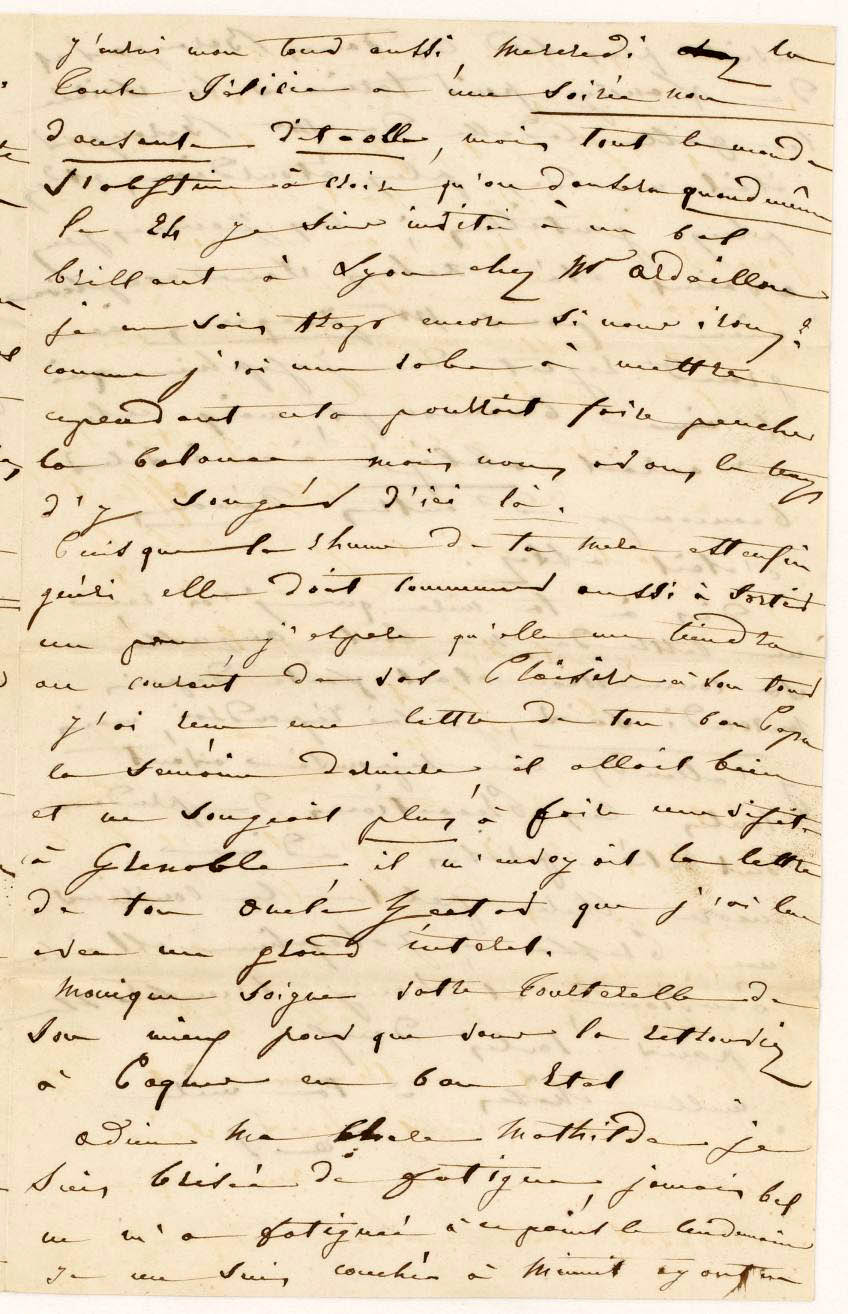 j'aurai mon tour aussi, mercredi la
tante Félicie a une soirée non
dansante dit-elle, mais tout le monde
s'obstine à croire qu'on dansera quand même
le 24 je suis invitée à un bal
brillant à Lyon chez Mr Ardaillon
je ne sais trop encore si nous irons ?
comme j'ai une robe à mettre
cependant cela pourrait faire pencher
la balance mais nous avons le temps
d'y songer d'ici là.
Puisque le rhume de ta mère est enfin
guéri elle doit commencer aussi à sortir
un peu j'espère qu'elle me tiendra
au courant de ses Plaisirs à son tour
j'ai reçu une lettre de ton bon Papa
la semaine dernière, il allait bien
et ne songeait plus à faire une visite
à Grenoble, il m'envoyait la lettre
de ton oncle que j'ai lue
avec un grand intérêt.
Monique soigne votre tourterelle de
son mieux pour que vous la retrouviez
à Pâques en bon état
adieu ma chère Mathilde je
suis brisée de fatigue, jamais bal
ne m'a fatiguée à ce point, le lendemain
je me suis couchée à minuit ayant